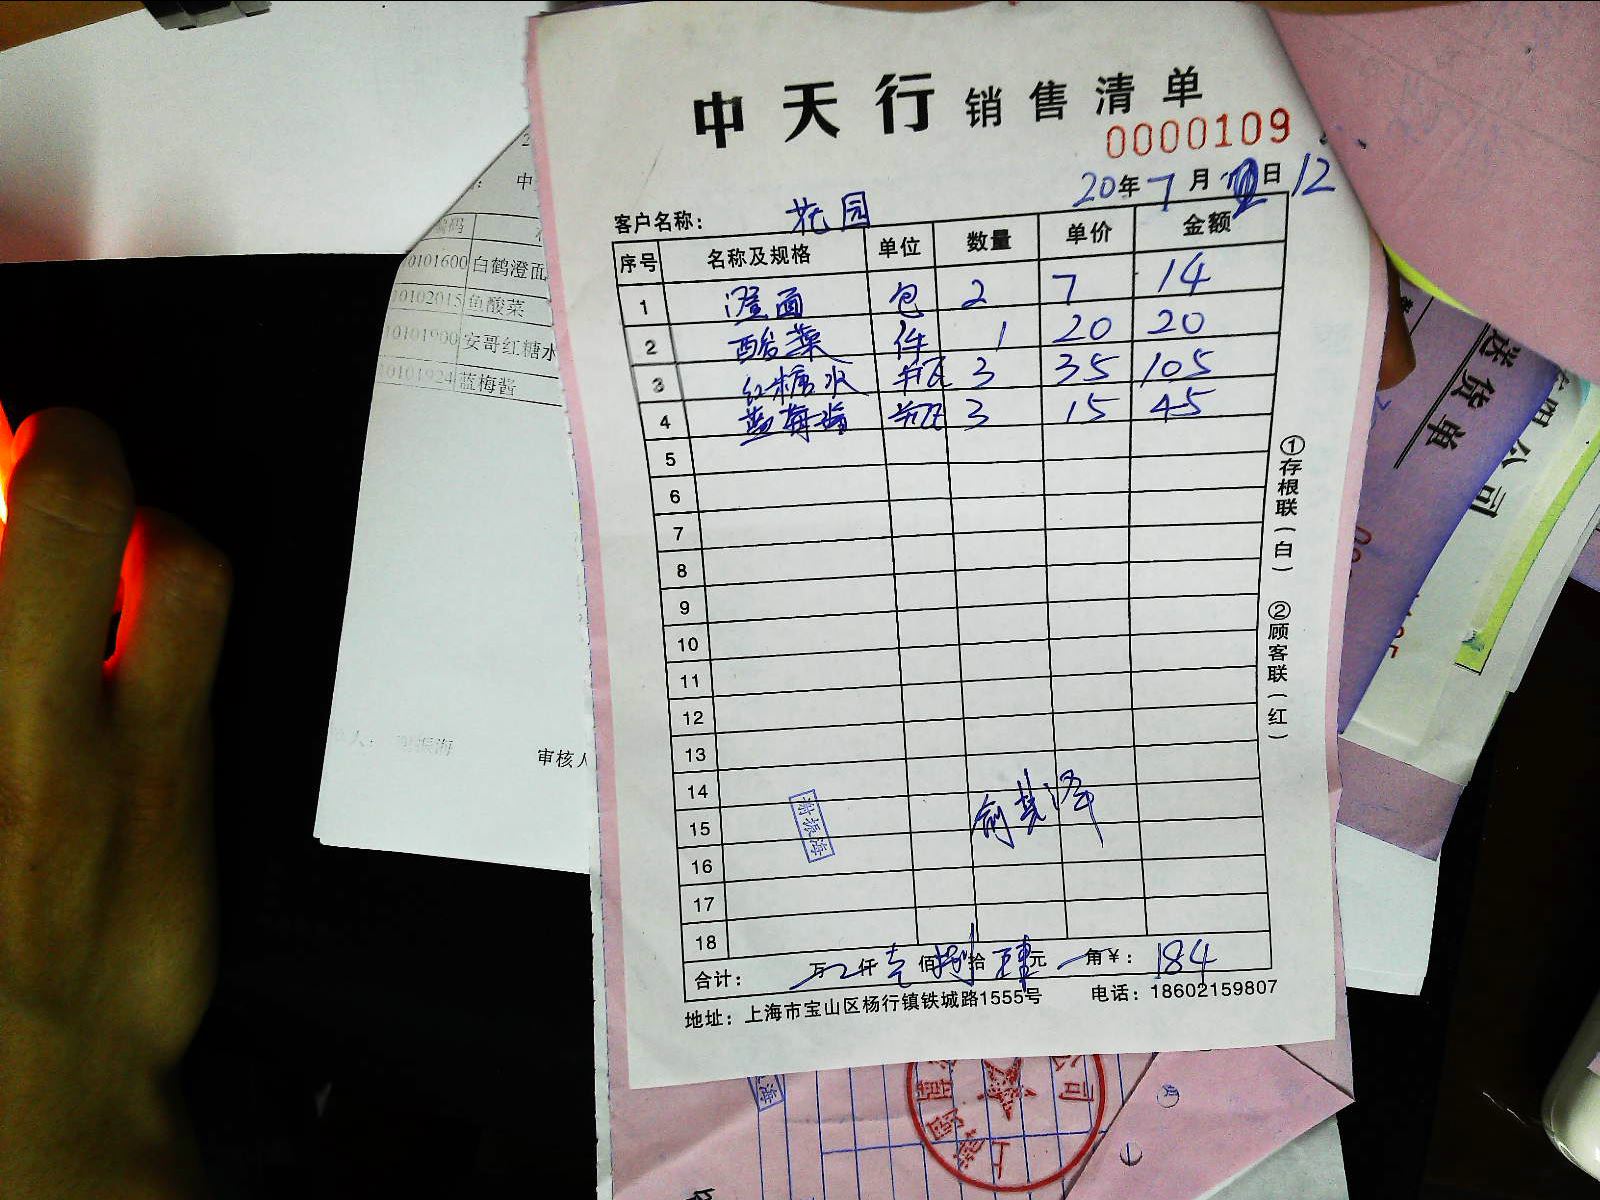 中天行 销售清单
0000109
20年7月日12
客户名称： 花园
序号 名称及规格 单位 数量 单价 金额
1 澄面 包 2 7 14
2 酸菜 件 1 20 20
3 红糖水 瓶 3 35 105
4 蓝莓酱 瓶 3 15 45
5
6
7
8
9
10
11
12
13
14
15
16
17
18
合计： 万 仟 壹佰捌拾肆元 角¥： 184
地址：上海市宝山区杨行镇铁城路1555号 电话：18602159807
①存根联（白） ②顾客联（红）
0101600 白鹤澄面
10102015 鱼酸菜
10101900 安哥红糖水
10101924 蓝梅酱
审核人
送货单
公司